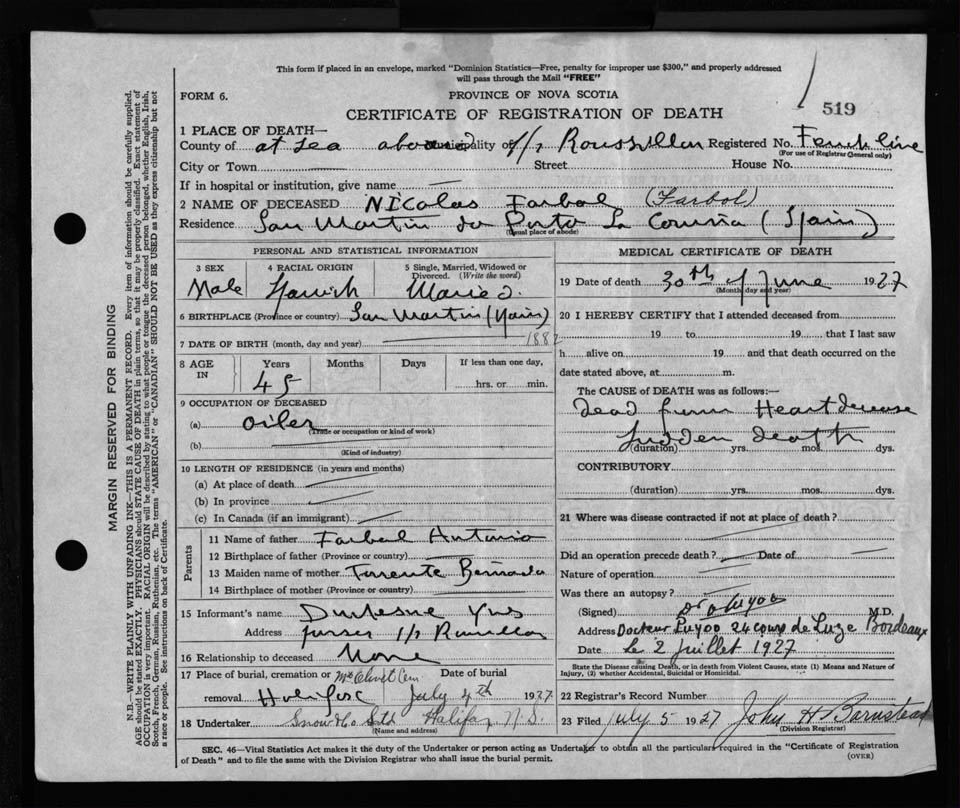 This form if placed in an envelope, marked "Dominion Statistics—Free, penalty for improper use $300," and properly addressed
will pass through the Mail "FREE"
FORM 6. PROVINCE OF NOVA SCOTIA
519
CERTIFICATE OF REGISTRATION OF DEATH
1 PLACE OF DEATH—
County of at sea aboard Municipality of s/s Roussillon Registered No. French line
(For use of Registrar General only)
City or Town Street House No.
If in hospital or institution, give name
2 NAME OF DECEASED Nicolas Farbal (Farbol)
Residence San Martin do Porto La Coruña (Spain)
(Usual place of abode)
PERSONAL AND STATISTICAL INFORMATION
3 SEX 4 RACIAL ORIGIN 5 Single, Married, Widowed or Divorced. (Write the word)
Male Spanish Married
6 BIRTHPLACE (Province or country) San Martin (Spain)
7 DATE OF BIRTH (month, day and year) 1882
8 AGE IN Years Months Days If less than one day,
45 hrs. or min.
9 OCCUPATION OF DECEASED
(a) oiler
(Trade or occupation or kind of work)
(b)
(Kind of industry)
10 LENGTH OF RESIDENCE (in years and months)
(a) At place of death
(b) In province
(c) In Canada (if an immigrant)
Parents
11 Name of father Farbal Antonio
12 Birthplace of father (Province or country)
13 Maiden name of mother
14 Birthplace of mother (Province or country)
15 Informant's name Yves
Address purser s/s Roussillon
16 Relationship to deceased None
17 Place of burial, cremation or Mt Olivet Cem Date of burial
removal Halifax July 4th 1927
18 Undertaker Snow & Co Ltd Halifax N.S.
(Name and address)
MEDICAL CERTIFICATE OF DEATH
19 Date of death 30th of June 1927
(Month, day and year)
20 I HEREBY CERTIFY that I attended deceased from
19 to 19 that I last saw
h alive on 19 and that death occurred on the
date stated above, at m.
The CAUSE OF DEATH was as follows:—
Dead from Heart disease
Sudden death
(duration) yrs. mos. dys.
CONTRIBUTORY
(duration) yrs. mos. dys.
21 Where was disease contracted if not at place of death?
Did an operation precede death? Date of
Nature of operation
Was there an autopsy?
(Signed) M.D.
Address Docteur Luyoo 24 cours de Luze Bordeaux
Date le 2 Juillet 1927
State the Disease causing Death, or in death from Violent Causes, state (1) Means and Nature of
Injury, (2) whether Accidental, Suicidal or Homicidal.
22 Registrar's Record Number
23 Filed July 5 1927 John H Barnstead
(Division Registrar)
SEC. 46—Vital Statistics Act makes it the duty of the Undertaker or person acting as Undertaker to obtain all the particulars required in the "Certificate of Registration
of Death" and to file the same with the Division Registrar who shall issue the burial permit.
(OVER)
MARGIN RESERVED FOR BINDING
N.B.—WRITE PLAINLY WITH UNFADING INK—THIS IS A PERMANENT RECORD. Every item of information should be carefully supplied.
AGE should be stated EXACTLY. PHYSICIANS should STATE CAUSE OF DEATH in plain terms, so that it may be properly classified. Exact statement of
OCCUPATION is very important. RACIAL ORIGIN will be described by stating to what people or tongue the deceased person belonged, whether English, Irish,
Scotch, French, German, Russian, Ruthenian, etc. The terms "AMERICAN" or "CANADIAN" SHOULD NOT BE USED as they express citizenship but not
a race or people. See instructions on back of Certificate.